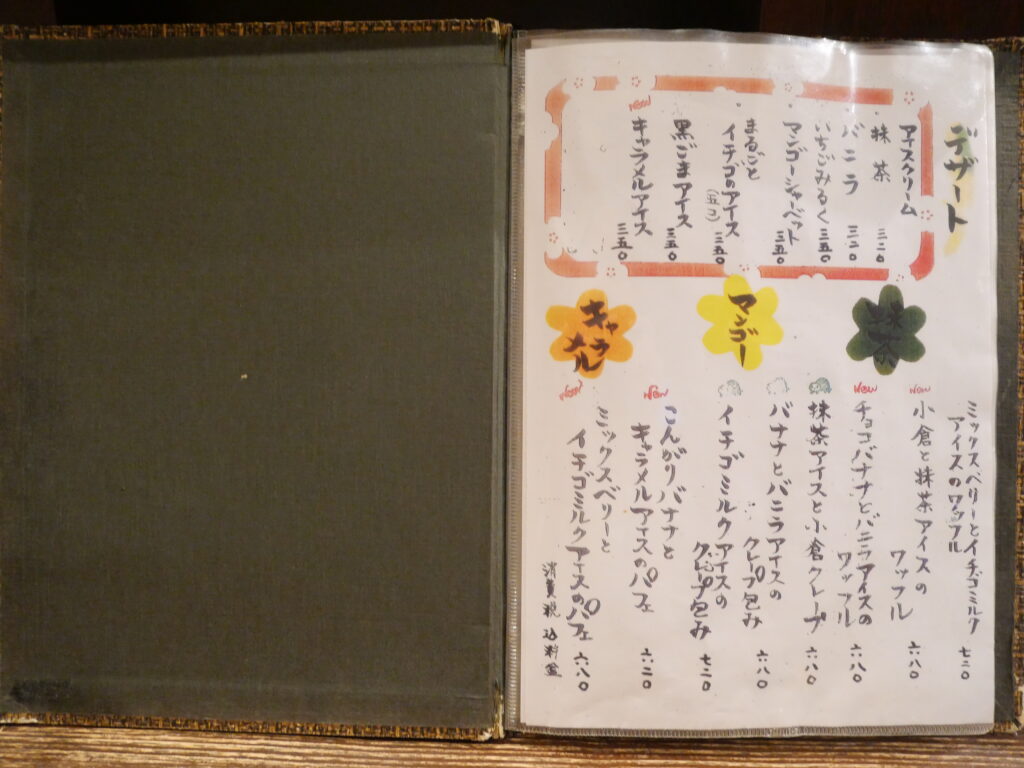 デザート
アイスクリーム
抹茶 三二〇
バニラ 三二〇
いちごみるく 三五〇
マンゴーシャーベット 三五〇
まるごと
イチゴのアイス 三五〇
(五コ)
黒ごまアイス 三五〇
New
キャラメルアイス 三五〇
抹茶
マンゴー
キャラメル
ミックスベリーとイチゴミルク
アイスのワッフル 七二〇
New
小倉と抹茶アイスの
ワッフル 六八〇
New
チョコバナナとバニラアイスの
ワッフル 六八〇
抹茶アイスと小倉クレープ 六八〇
バナナとバニラアイスの
クレープ包み 六八〇
イチゴミルクアイスの
クレープ包み 七二〇
New
こんがりバナナと
キャラメルアイスのパフェ 六二〇
New
ミックスベリーと
イチゴミルクアイスのパフェ 六八〇
消費税込料金